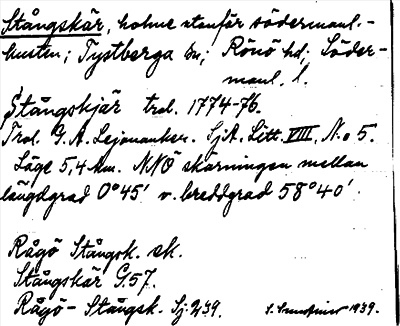 Stångskär, holme utanför södermanl.-
kusten; Tystberga sn; Rönö hd; Söder-
manl. l.
Stångskjär trol. 1774-76.
Trol. G. A. Lejonanker. SjA. Litt. VIII, N:o 5.
Läge 5,4 km. NNÖ skärningen mellan
längdgrad 0°45' v. breddgrad 58°40'.
Rågö Stångsk. ek.
Stångskär G.57.
Rågö - Stångsk. Sj. 239.
1939.